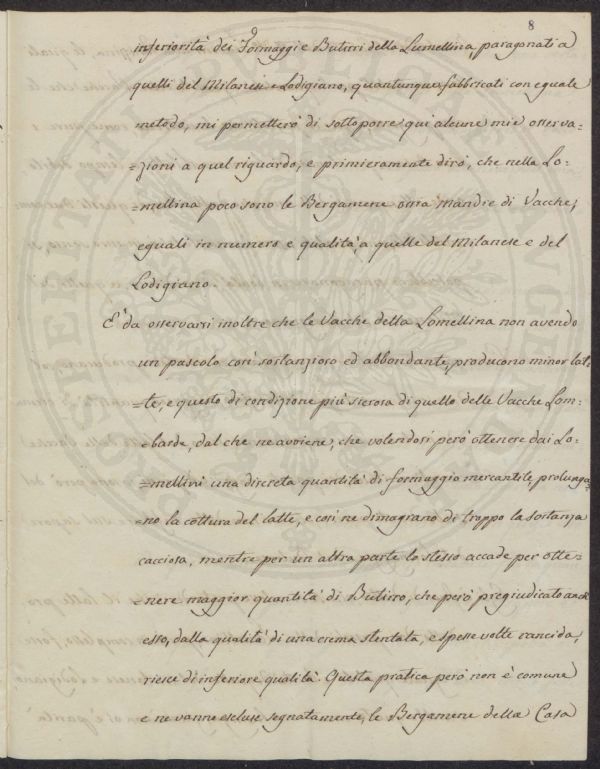 8
inferiorità dei Formaggi e Butirri della Lumellina, paragonati a
quelli del Milanese e Lodigiano, quantunque fabbricati con eguale
metodo, mi permetterò di sottoporre qui alcune mie osserva=
=zioni a quel riguardo, e primieramente dirò, che nella Lo=
=mellina poco sono le Bergamene ossia Mandre di Vacche,
eguali in numero e qualità, a quelle del Milanese e del
Lodigiano.
E' da osservarsi inoltre che le Vacche della Lomellina non avendo
un pascolo così sostanzioso ed abbondante, producono minor lat=
=te, e questo di condizione più sierosa di quello delle Vacche Lom=
=barde, dal che ne avviene, che volendosi però ottenere dai Lo=
=mellini una discreta quantità di formaggio mercantile, prolunga=
=no la cottura del latte, e così ne dimagrano di troppo la sostanza
cacciosa, mentre per un altra parte lo stesso accade per otte=
=nere maggior quantità di Butirro, che però pregiudicato anch
esso, dalla qualità di una crema stentata, e spesse volte rancida,
riesce di inferiore qualità. Questa pratica però non è comune
e ne vanno escluse segnatamente, le Bergamene della Casa